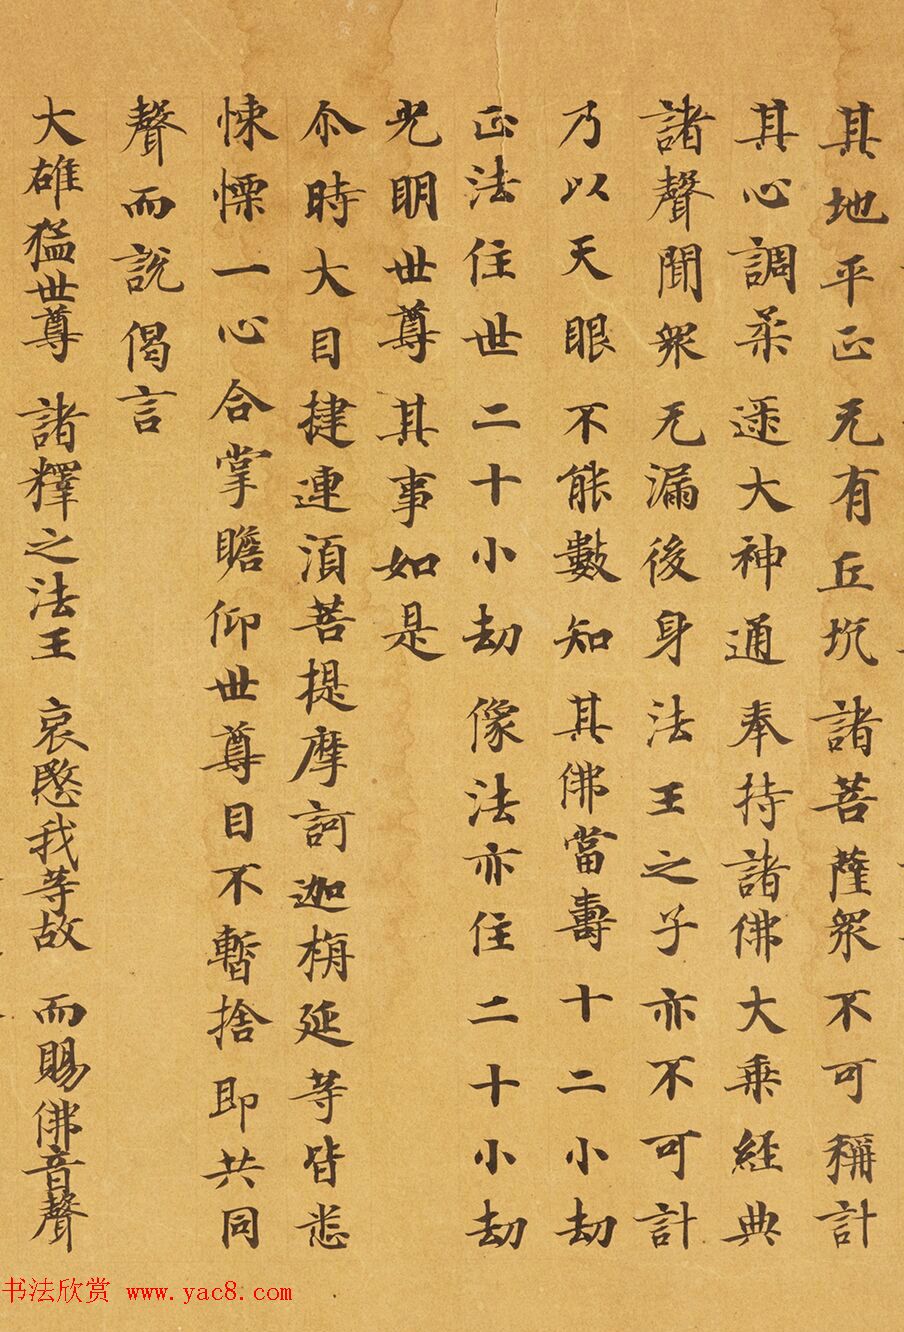 其地平正 无有丘坑 諸菩薩眾 不可稱計
其心調柔 逮大神通 奉持諸佛 大乘經典
諸聲聞眾 无漏後身 法王之子 亦不可計
乃以天眼 不能數知 其佛當壽 十二小劫
正法住世 二十小劫 像法亦住 二十小劫
光明世尊 其事如是
尒時大目揵連須菩提摩訶迦栴延等皆悉
悚慄一心合掌瞻仰世尊目不暫捨即共同
聲而說偈言
大雄猛世尊 諸釋之法王 哀愍我等故 而賜佛音聲
书法欣赏 www.yac8.com